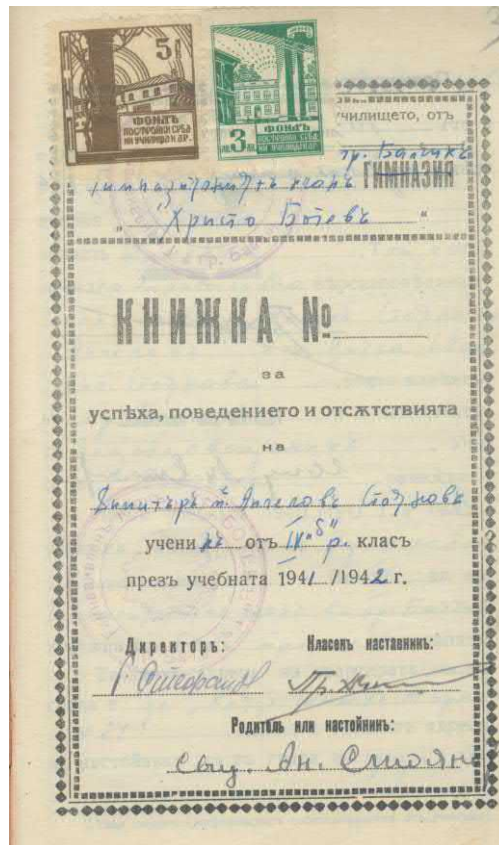 5
ФОНДЪ
ПОСТРОЙКИ СРѢД
НИ УЧИЛИЩА И ДР.
ЛВ. 3 ЛВ.
ФОНДЪ
ПОСТРОЙКИ СРѢД
НИ УЧИЛИЩА И ДР.
училището, отъ
гр. Балчикъ
ГИМНАЗИЯ
"Христо Ботевъ"
КНИЖКА №
за
успѣха, поведението и отсѫтствията
на
Димитъръ Ангеловъ Стояновъ
ученикъ отъ IV "б" р. класъ
презъ учебната 1941/1942 г.
Директоръ: Класенъ наставникъ:
Родитель или настойникъ:
Ан. Стоян